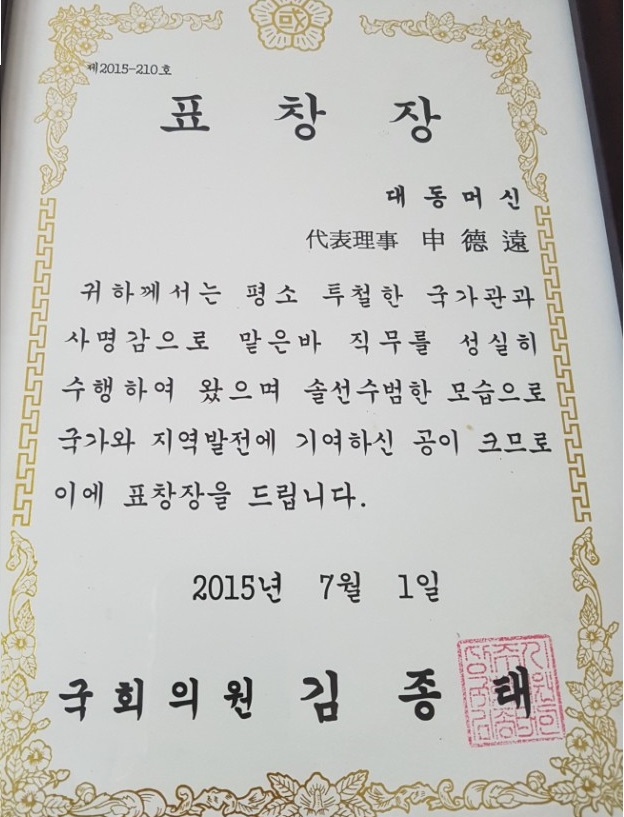 제2015-210호
표 창 장
대동머신
代表理事 申德遠
귀하께서는 평소 투철한 국가관과
사명감으로 맡은바 직무를 성실히
수행하여 왔으며 솔선수범한 모습으로
국가와 지역발전에 기여하신 공이 크므로
이에 표창장을 드립니다.
2015년 7월 1일
국회의원 김종태